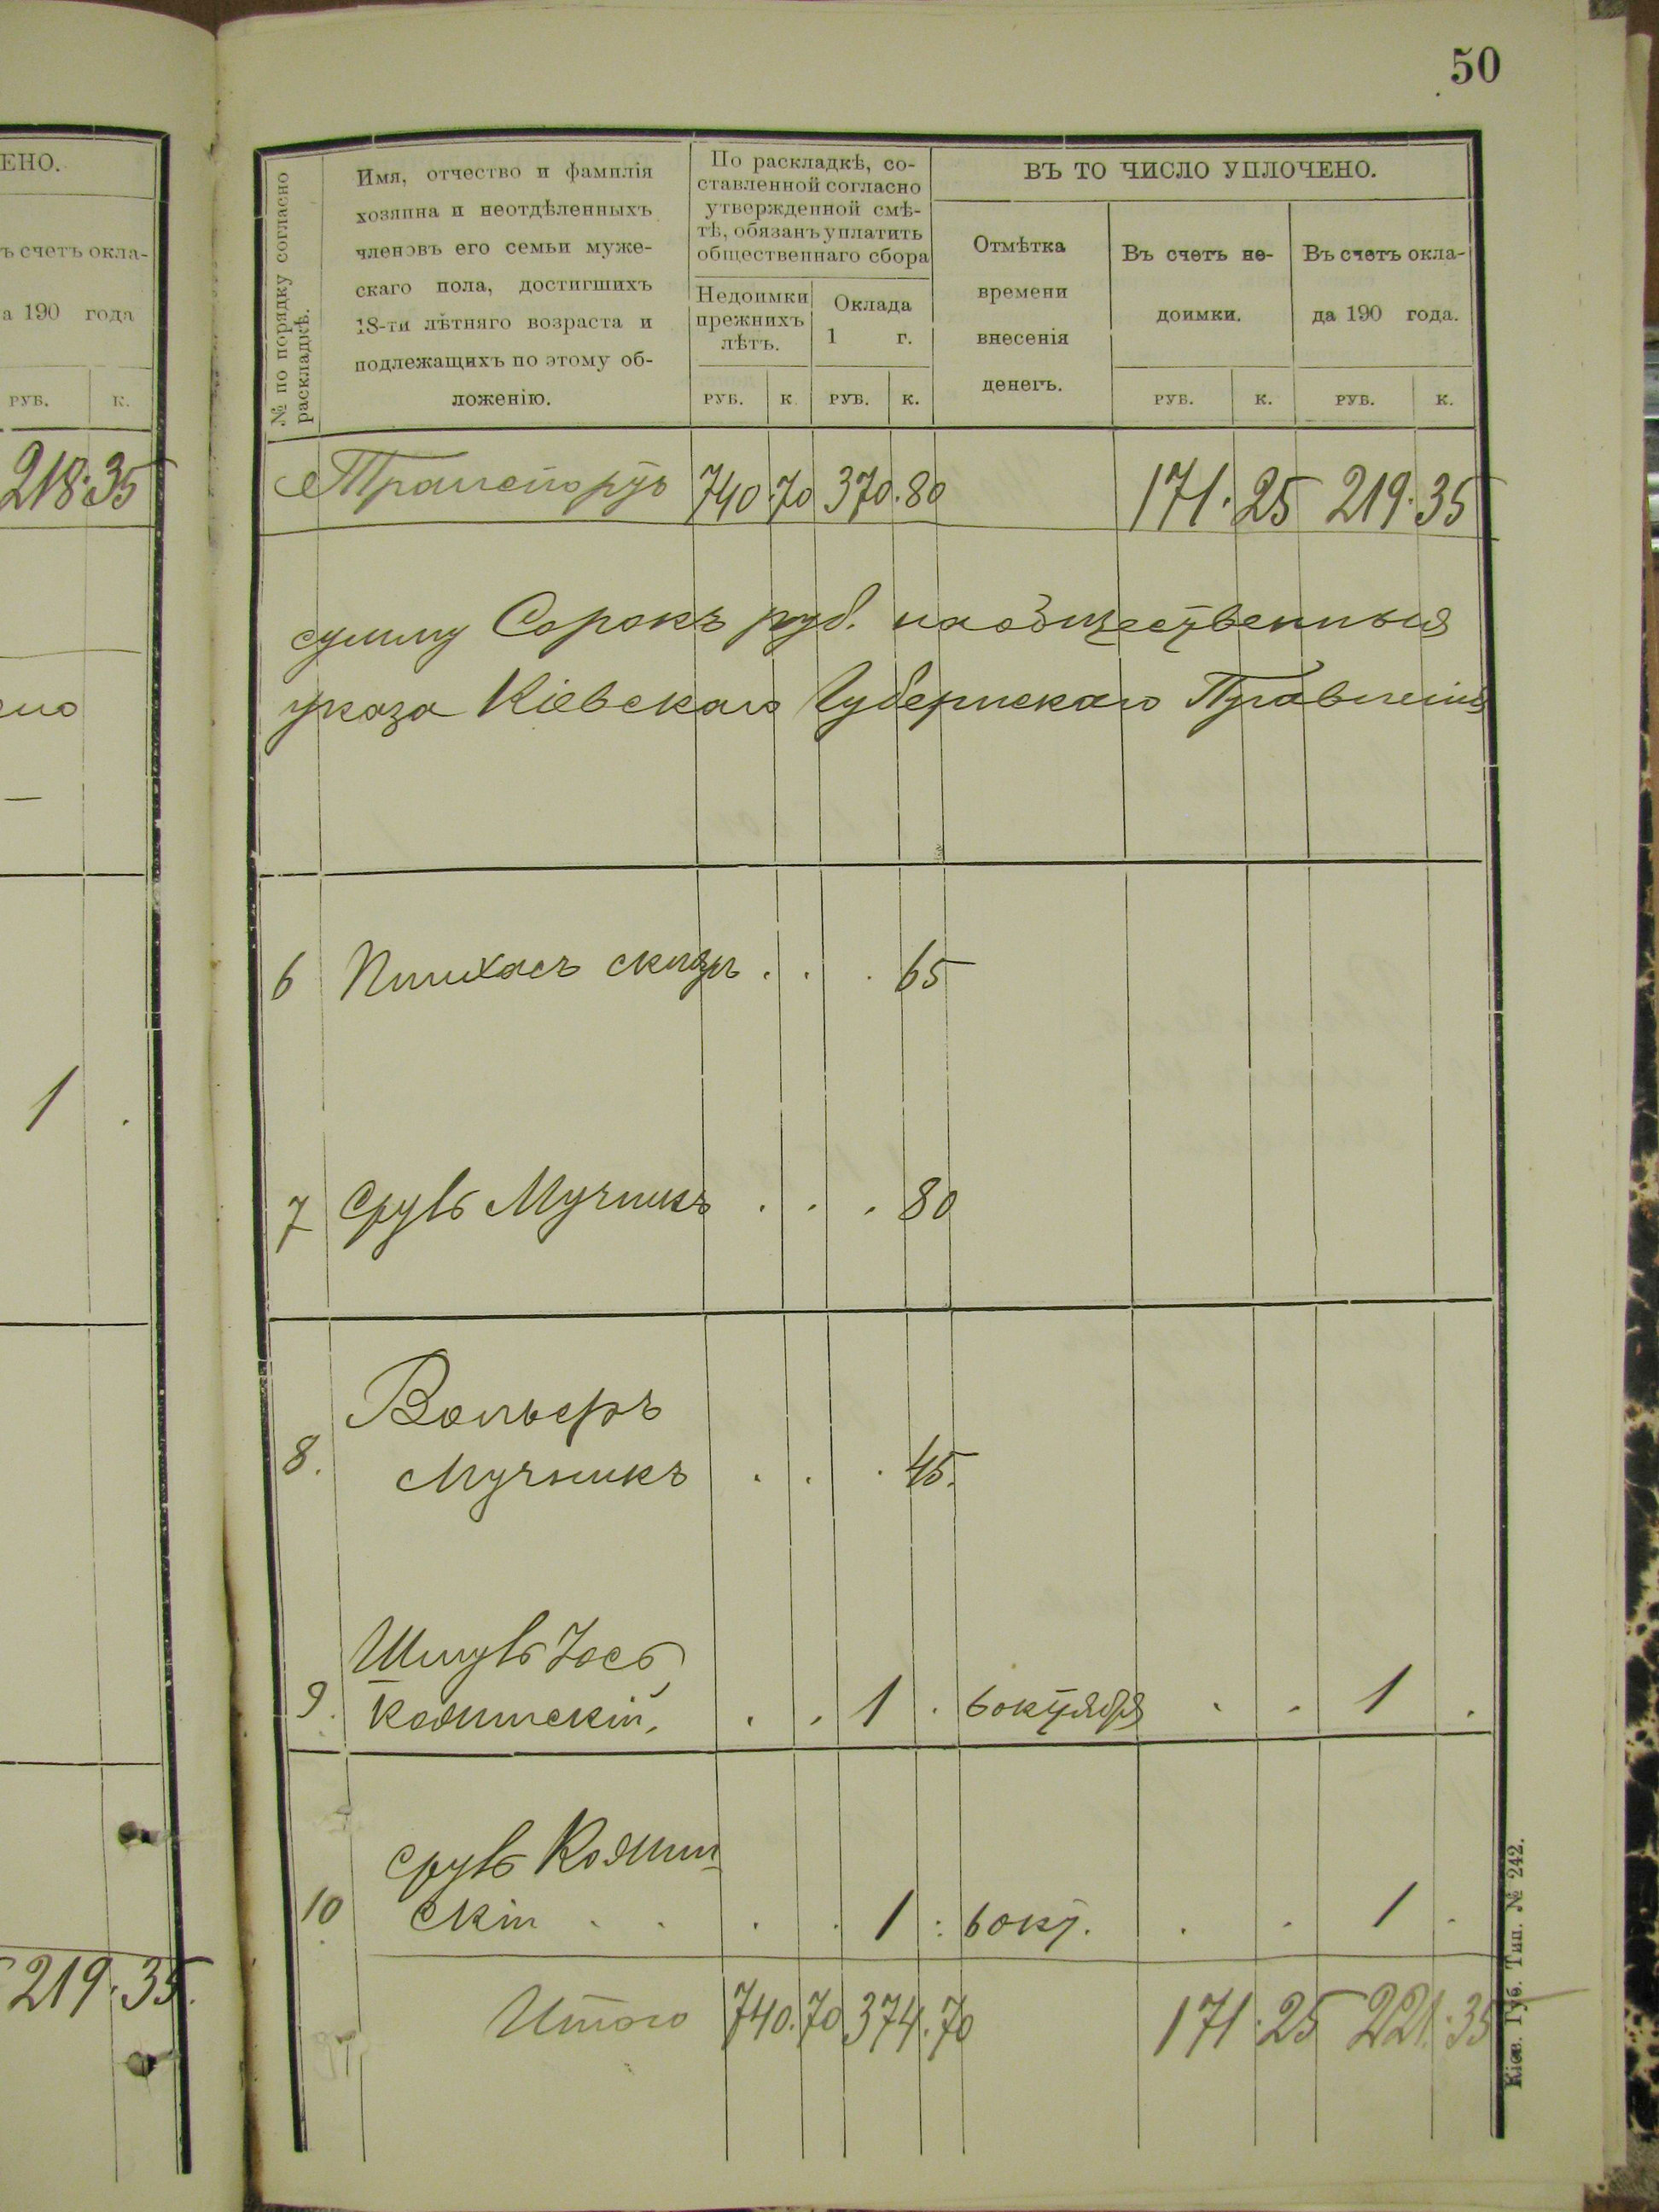 50
ЕНО.
ъ счетъ окла-
а 190 года
РУБ. К.
218·35
1 .
219·35.
№ по порядку согласно
раскладкѣ.
Имя, отчество и фамилія
хозяина и неотдѣленныхъ
членовъ его семьи муже-
скаго пола, достигшихъ
18-ти лѣтняго возраста и
подлежащихъ по этому об-
ложенію.
По раскладкѣ, со-
ставленной согласно
утвержденной смѣ-
тѣ, обязанъ уплатить
общественнаго сбора
Недоимки
прежнихъ
лѣтъ.
Оклада
1 г.
РУБ. К. РУБ. К.
ВЪ ТО ЧИСЛО УПЛОЧЕНО.
Отмѣтка
времени
внесенія
денегъ.
Въ счетъ не-
доимки.
Въ счетъ окла-
да 190 года.
РУБ. К. РУБ. К.
Транспортъ 740·70 370·80 171·25 219·35
сумму Сорокъ руб. на общественныя
указа Кіевскаго Губернскаго Правленія
6 Пинхасъ . . . 65
7 Сруль Мучникъ . . . 80
Вольеръ
8. Мучникъ . . . 45.
Шмуль Іось
9. . . 1 . 6 октября . . 1 .
Сруль
10 скій . . . . 1 : 6 окт. . . 1 .
Итого 740.70 374.70 171·25 221·35
Кіев. Губ. Тип. № 242.